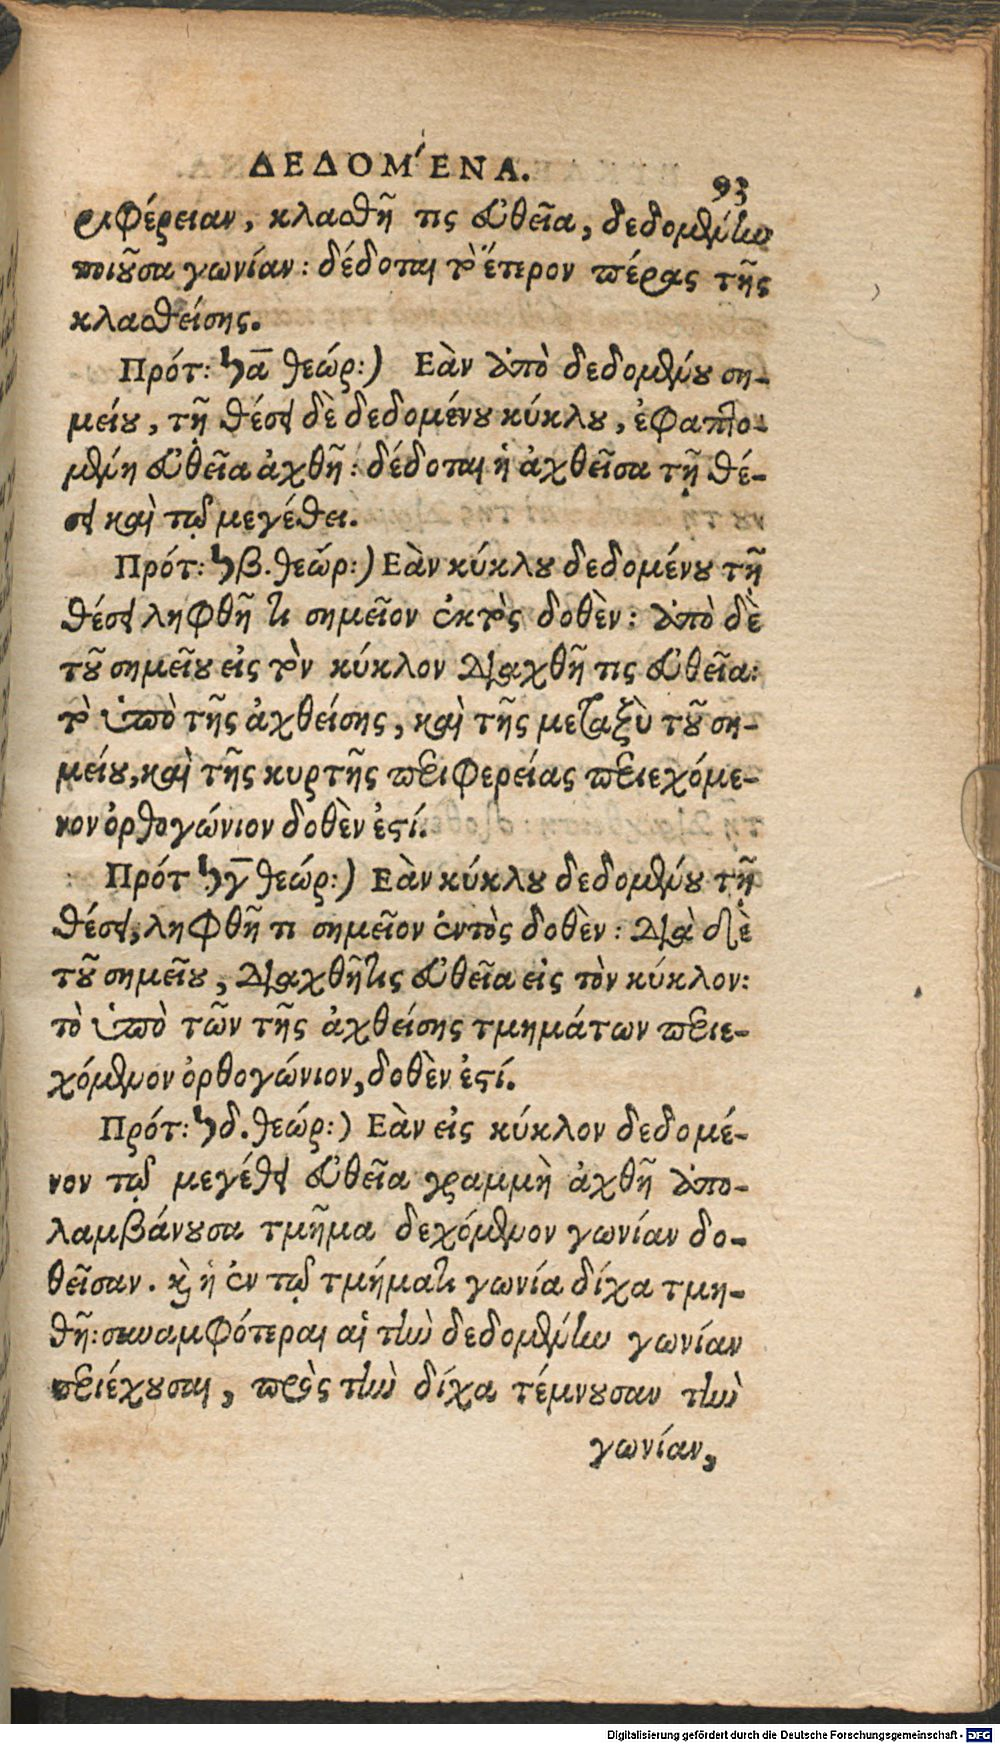 ΔΕΔΟΜΈΝΑ.
93
ριφέρειαν, κλασθῇ τις εὐθεῖα, δεδομένην
ποιοῦσα γωνίαν: δέδοται τὸ ἕτερον πέρας τῆς
κλασθείσης.
Πρότ: ϟα θεώρ:) Εὰν ἀπὸ δεδομένου ση-
μείου, τῇ θέσει δὲ δεδομένου κύκλου, ἐφαπτο-
μένη εὐθεῖα ἀχθῇ: δέδοται ἡ ἀχθεῖσα τῇ θέ-
σει καὶ τῷ μεγέθει.
Πρότ: ϟβ. θεώρ:) Εὰν κύκλου δεδομένου τῇ
θέσει ληφθῇ τι σημεῖον ἐκτὸς δοθὲν: ἀπὸ δὲ
τοῦ σημεῖου εἰς τὸν κύκλον διαχθῇ τις εὐθεῖα:
τὸ ὑπὸ τῆς ἀχθείσης, καὶ τῆς μεταξὺ τοῦ ση-
μείου, καὶ τῆς κυρτῆς περιφερείας περιεχόμε-
νον ὀρθογώνιον δοθὲν ἐστί.
Πρότ ϟγ θεώρ:) Εὰν κύκλου δεδομένου τῇ
θέσει, ληφθῇ τι σημεῖον ἐντὸς δοθὲν: διὰ δὲ
τοῦ σημεῖου, διαχθῇ τις εὐθεῖα εἰς τὸν κύκλον:
τὸ ὑπὸ τῶν τῆς ἀχθείσης τμημάτων περιε-
χόμενον ὀρθογώνιον, δοθὲν ἐστί.
Πρότ: ϟδ. θεώρ:) Εὰν εἰς κύκλον δεδομέ-
νον τῷ μεγέθει εὐθεῖα γραμμὴ ἀχθῇ ἀπο-
λαμβάνουσα τμῆμα δεχόμενον γωνίαν δο-
θεῖσαν. καὶ ἡ ἐν τῷ τμήματι γωνία δίχα τμη-
θῇ: συναμφότεραι αἱ τὴν δεδομένην γωνίαν
περιέχουσαι, πρὸς τὴν δίχα τέμνουσαν τὴν
γωνίαν,
Digitalisierung gefördert durch die Deutsche Forschungsgemeinschaft - DFG